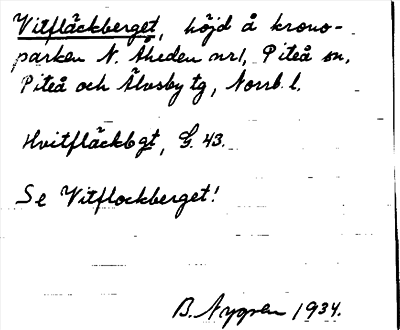 Vitfläckberget, höjd å krono-
parken N. Åheden nr1, Piteå sn,
Piteå och Älvsby tg, Norrb. l.
Hvitfläckbgt, G. 43.
Se Vitflockberget!
B. Nygren 1934.